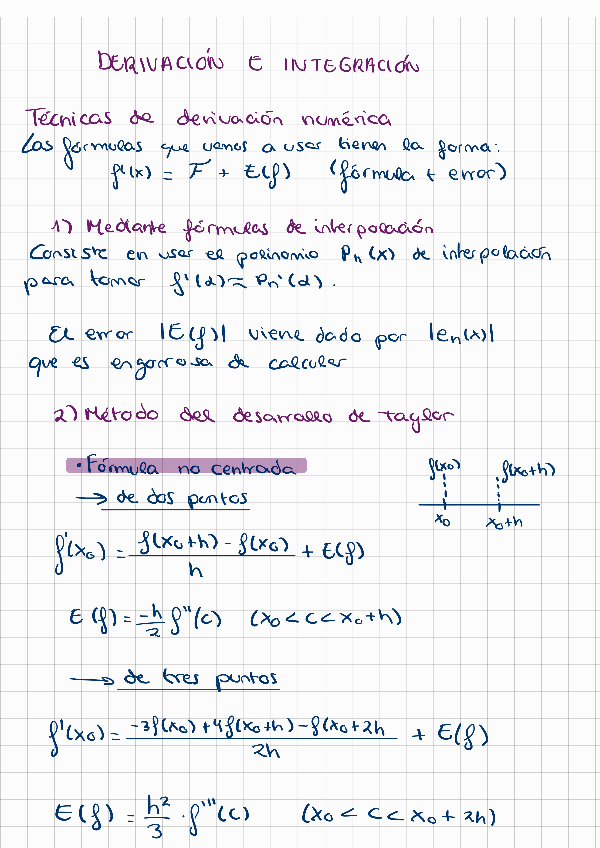 DERIVACIÓN E INTEGRACIÓN
Técnicas de derivación numérica
Las fórmulas que vamos a usar tienen la forma:
f'(x) = F + E(f) (fórmula + error)
1) Mediante fórmulas de interpolación
Consiste en usar el polinomio Pn(x) de interpolación
para tomar f'(α) ≈ Pn'(α).
El error |E(f)| viene dado por |en(x)|
que es engorrosa de calcular
2) Método del desarrollo de taylor
• Fórmula no centrada
f(x0) f(x0+h)
→ de dos puntos
x0 x0+h
f'(x0) = f(x0+h) - f(x0) / h + E(f)
E(f) = -h/2 f''(c) (x0 < c < x0+h)
→ de tres puntos
f'(x0) = -3f(x0) + 4f(x0+h) - f(x0+2h / 2h + E(f)
E(f) = h²/3 · f'''(c) (x0 < c < x0 + 2h)